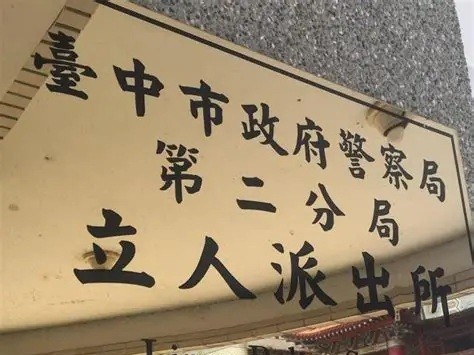 臺中市政府警察局
第二分局
立人派出所